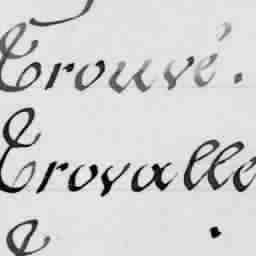 Trouvé.
Trovalle